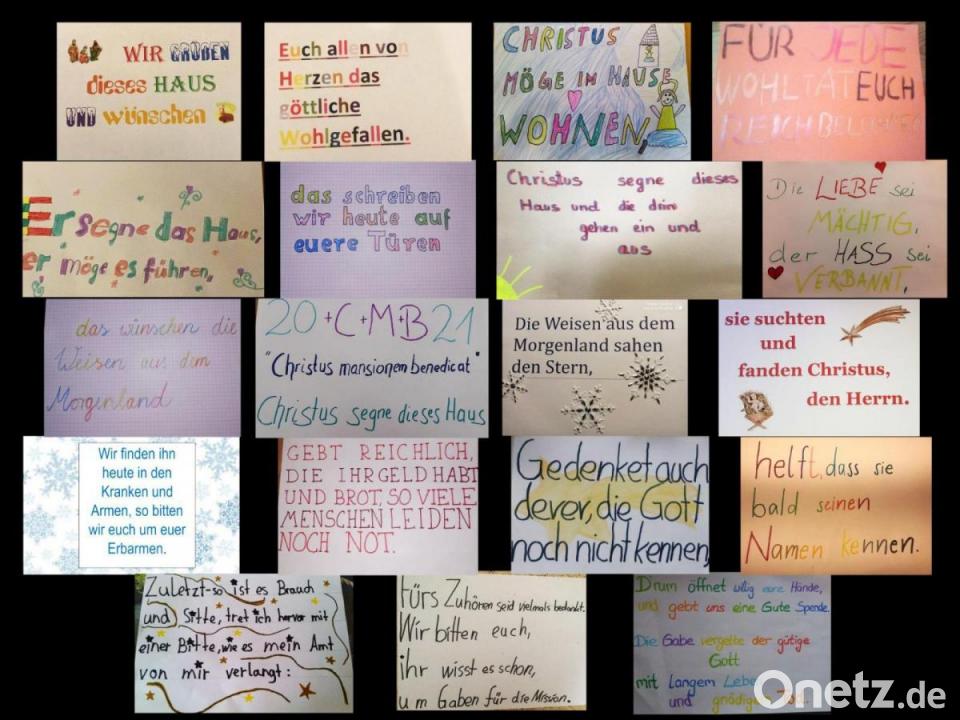 WIR GRÜßEN
dieses HAUS
UND wünschen
Euch allen von
Herzen das
göttliche
Wohlgefallen.
CHRISTUS
MÖGE IM HAUSE
WOHNEN,
FÜR JEDE
WOHLTAT EUCH
REICH BELOHNEN
Er segne das Haus,
er möge es führen,
das schreiben
wir heute auf
euere Türen
Christus segne dieses
Haus und die drin
gehen ein und
aus
Die LIEBE sei
MÄCHTIG,
der HASS sei
VERBANNT,
das wünschen die
Weisen aus dem
Morgenland
20+C+M+B21
"Christus mansionem benedicat"
Christus segne dieses Haus
Die Weisen aus dem
Morgenland sahen
den Stern,
sie suchten
und
fanden Christus,
den Herrn.
Wir finden ihn
heute in den
Kranken und
Armen, so bitten
wir euch um euer
Erbarmen.
GEBT REICHLICH,
DIE IHR GELD HABT
UND BROT, SO VIELE
MENSCHEN LEIDEN
NOCH NOT.
Gedenket auch
derer, die Gott
noch nicht kennen,
helft, dass sie
bald seinen
Namen kennen.
Zuletzt-so ist es Brauch
und Sitte, tret ich hervor mit
einer Bitte, wie es mein Amt
von mir verlangt:
Fürs Zuhören seid vielmals bedankt.
Wir bitten euch,
ihr wisst es schon,
um Gaben für die Mission.
Drum öffnet willig eure Hände,
und gebt uns eine Gute Spende.
Die Gabe vergelte der gütige
Gott
mit langem Leben
und
Onetz.de